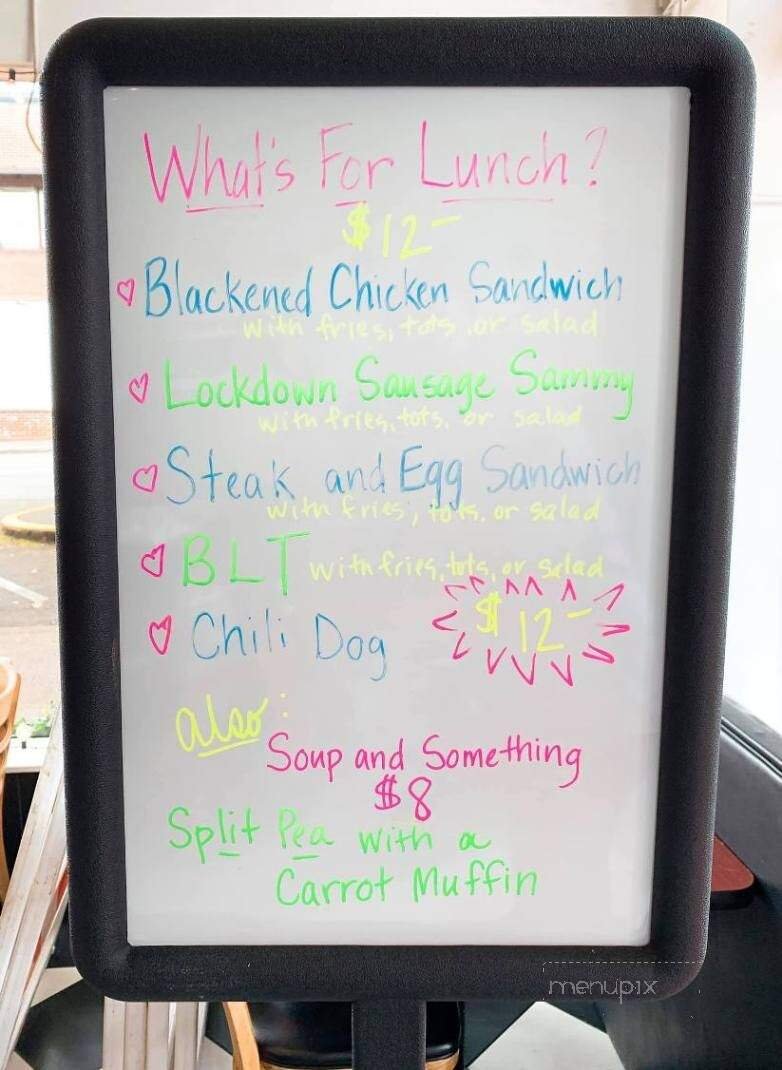 What's For Lunch?
$12-
Blackened Chicken Sandwich
with fries, tots, or salad
Lockdown Sausage Sammy
with fries, tots, or salad
Steak and Egg Sandwich
with fries, tots, or salad
BLT with fries, tots, or salad
Chili Dog
$12-
also:
Soup and Something
$8
Split Pea with a
Carrot Muffin
menupix